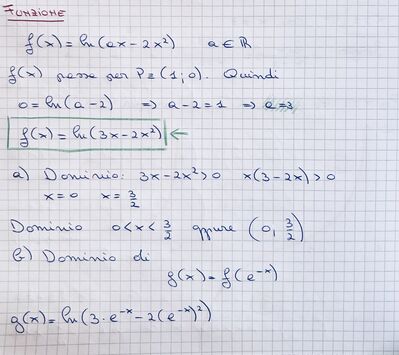 FUNZIONE
f(x) = ln(ax - 2x²) a ∈ ℝ
f(x) passa per P ≡ (1, 0). Quindi
0 = ln(a - 2) ⇒ a - 2 = 1 ⇒ a = 3
f(x) = ln(3x - 2x²) ←
a) Dominio: 3x - 2x² > 0 x(3 - 2x) > 0
x = 0 x = 3/2
Dominio 0 < x < 3/2 oppure (0, 3/2)
b) Dominio di
g(x) = f(e⁻ˣ)
g(x) = ln(3·e⁻ˣ - 2(e⁻ˣ)²)